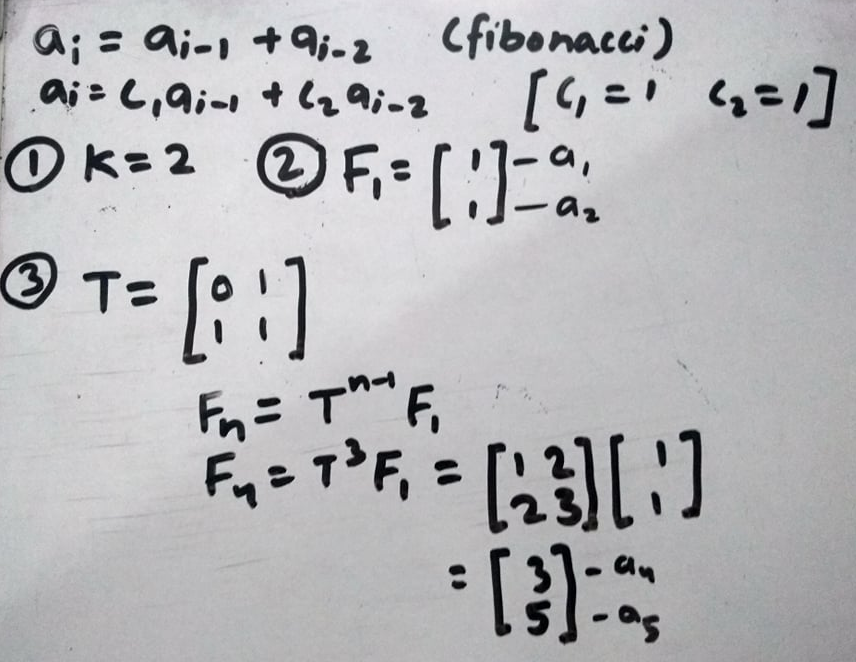 aᵢ = aᵢ₋₁ + aᵢ₋₂ (fibonacci)
aᵢ = c₁aᵢ₋₁ + c₂aᵢ₋₂ [c₁ = 1 c₂ = 1]
① K = 2 ② F₁ = [1 1] - a₁ - a₂
③ T = [0 1 1 1]
Fₙ = Tⁿ⁻¹ F₁
F₄ = T³ F₁ = [1 2 2 3] [1 1]
= [3 5] - a₄ - a₅